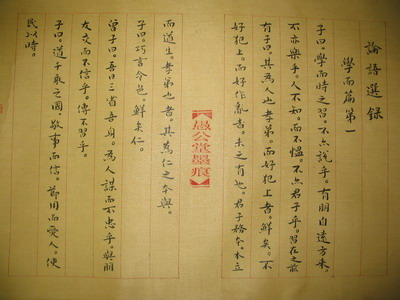 論語選錄
學而篇第一
子曰。學而時之習。不亦說乎。有朋自遠方來。
不亦樂乎。人不知。而不慍。不亦君子乎。習在之前
有子曰。其為人也孝弟。而好犯上者。鮮矣。不
好犯上。而好作亂者。未之有也。君子務本。本立
愚公堂墨痕
而道生。孝弟也者。其為仁之本與。
子曰。巧言令色。鮮矣仁。
曾子曰。吾日三省吾身。為人謀而不忠乎。與朋
友交而不信乎。傳不習乎。
子曰。道千乘之國。敬事而信。節用而愛人。使
民以時。